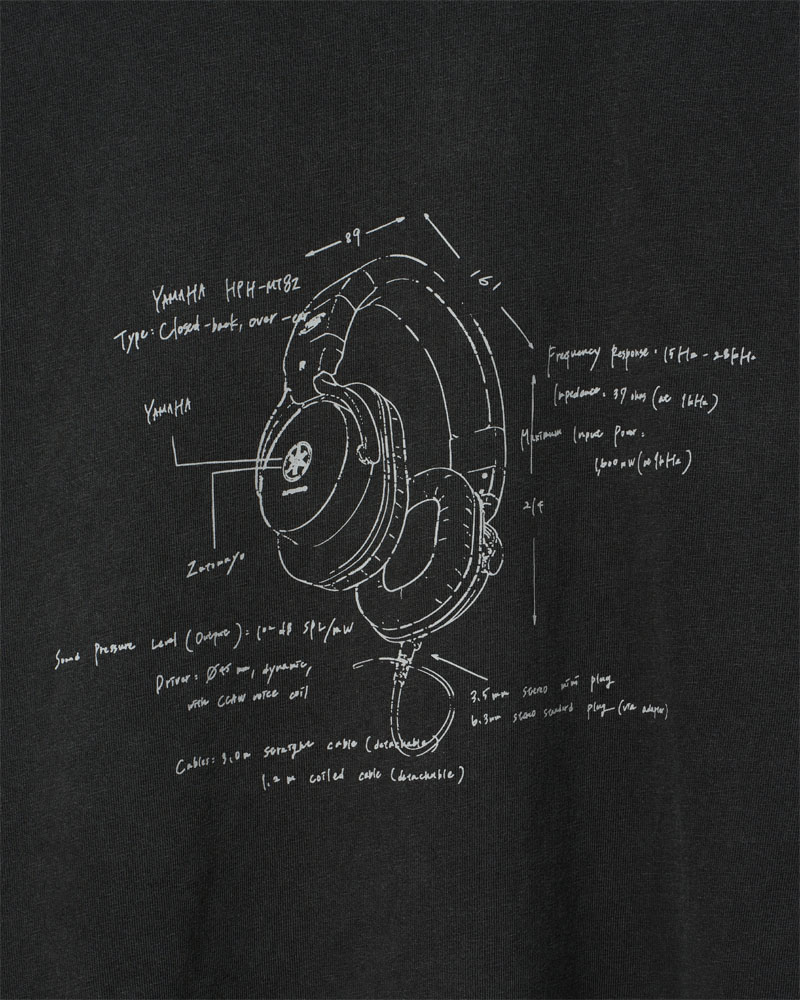 89
161
YAMAHA HPH-MT8Z
Type: Closed-back, over-ear
Frequency Response: 15Hz - 28kHz
Impedance: 37 ohms (at 1kHz)
YAMAHA
Maximum Input Power:
1,600mW (at 1kHz)
214
Zatomayo
Sound Pressure Level (Output): 102 dB SPL/mW
Driver: Ø45 mm, dynamic,
with CCAW voice coil
3.5mm stereo mini plug
6.3mm stereo standard plug (via adapter)
Cables: 3.0m straight cable (detachable)
1.2 m coiled cable (detachable)